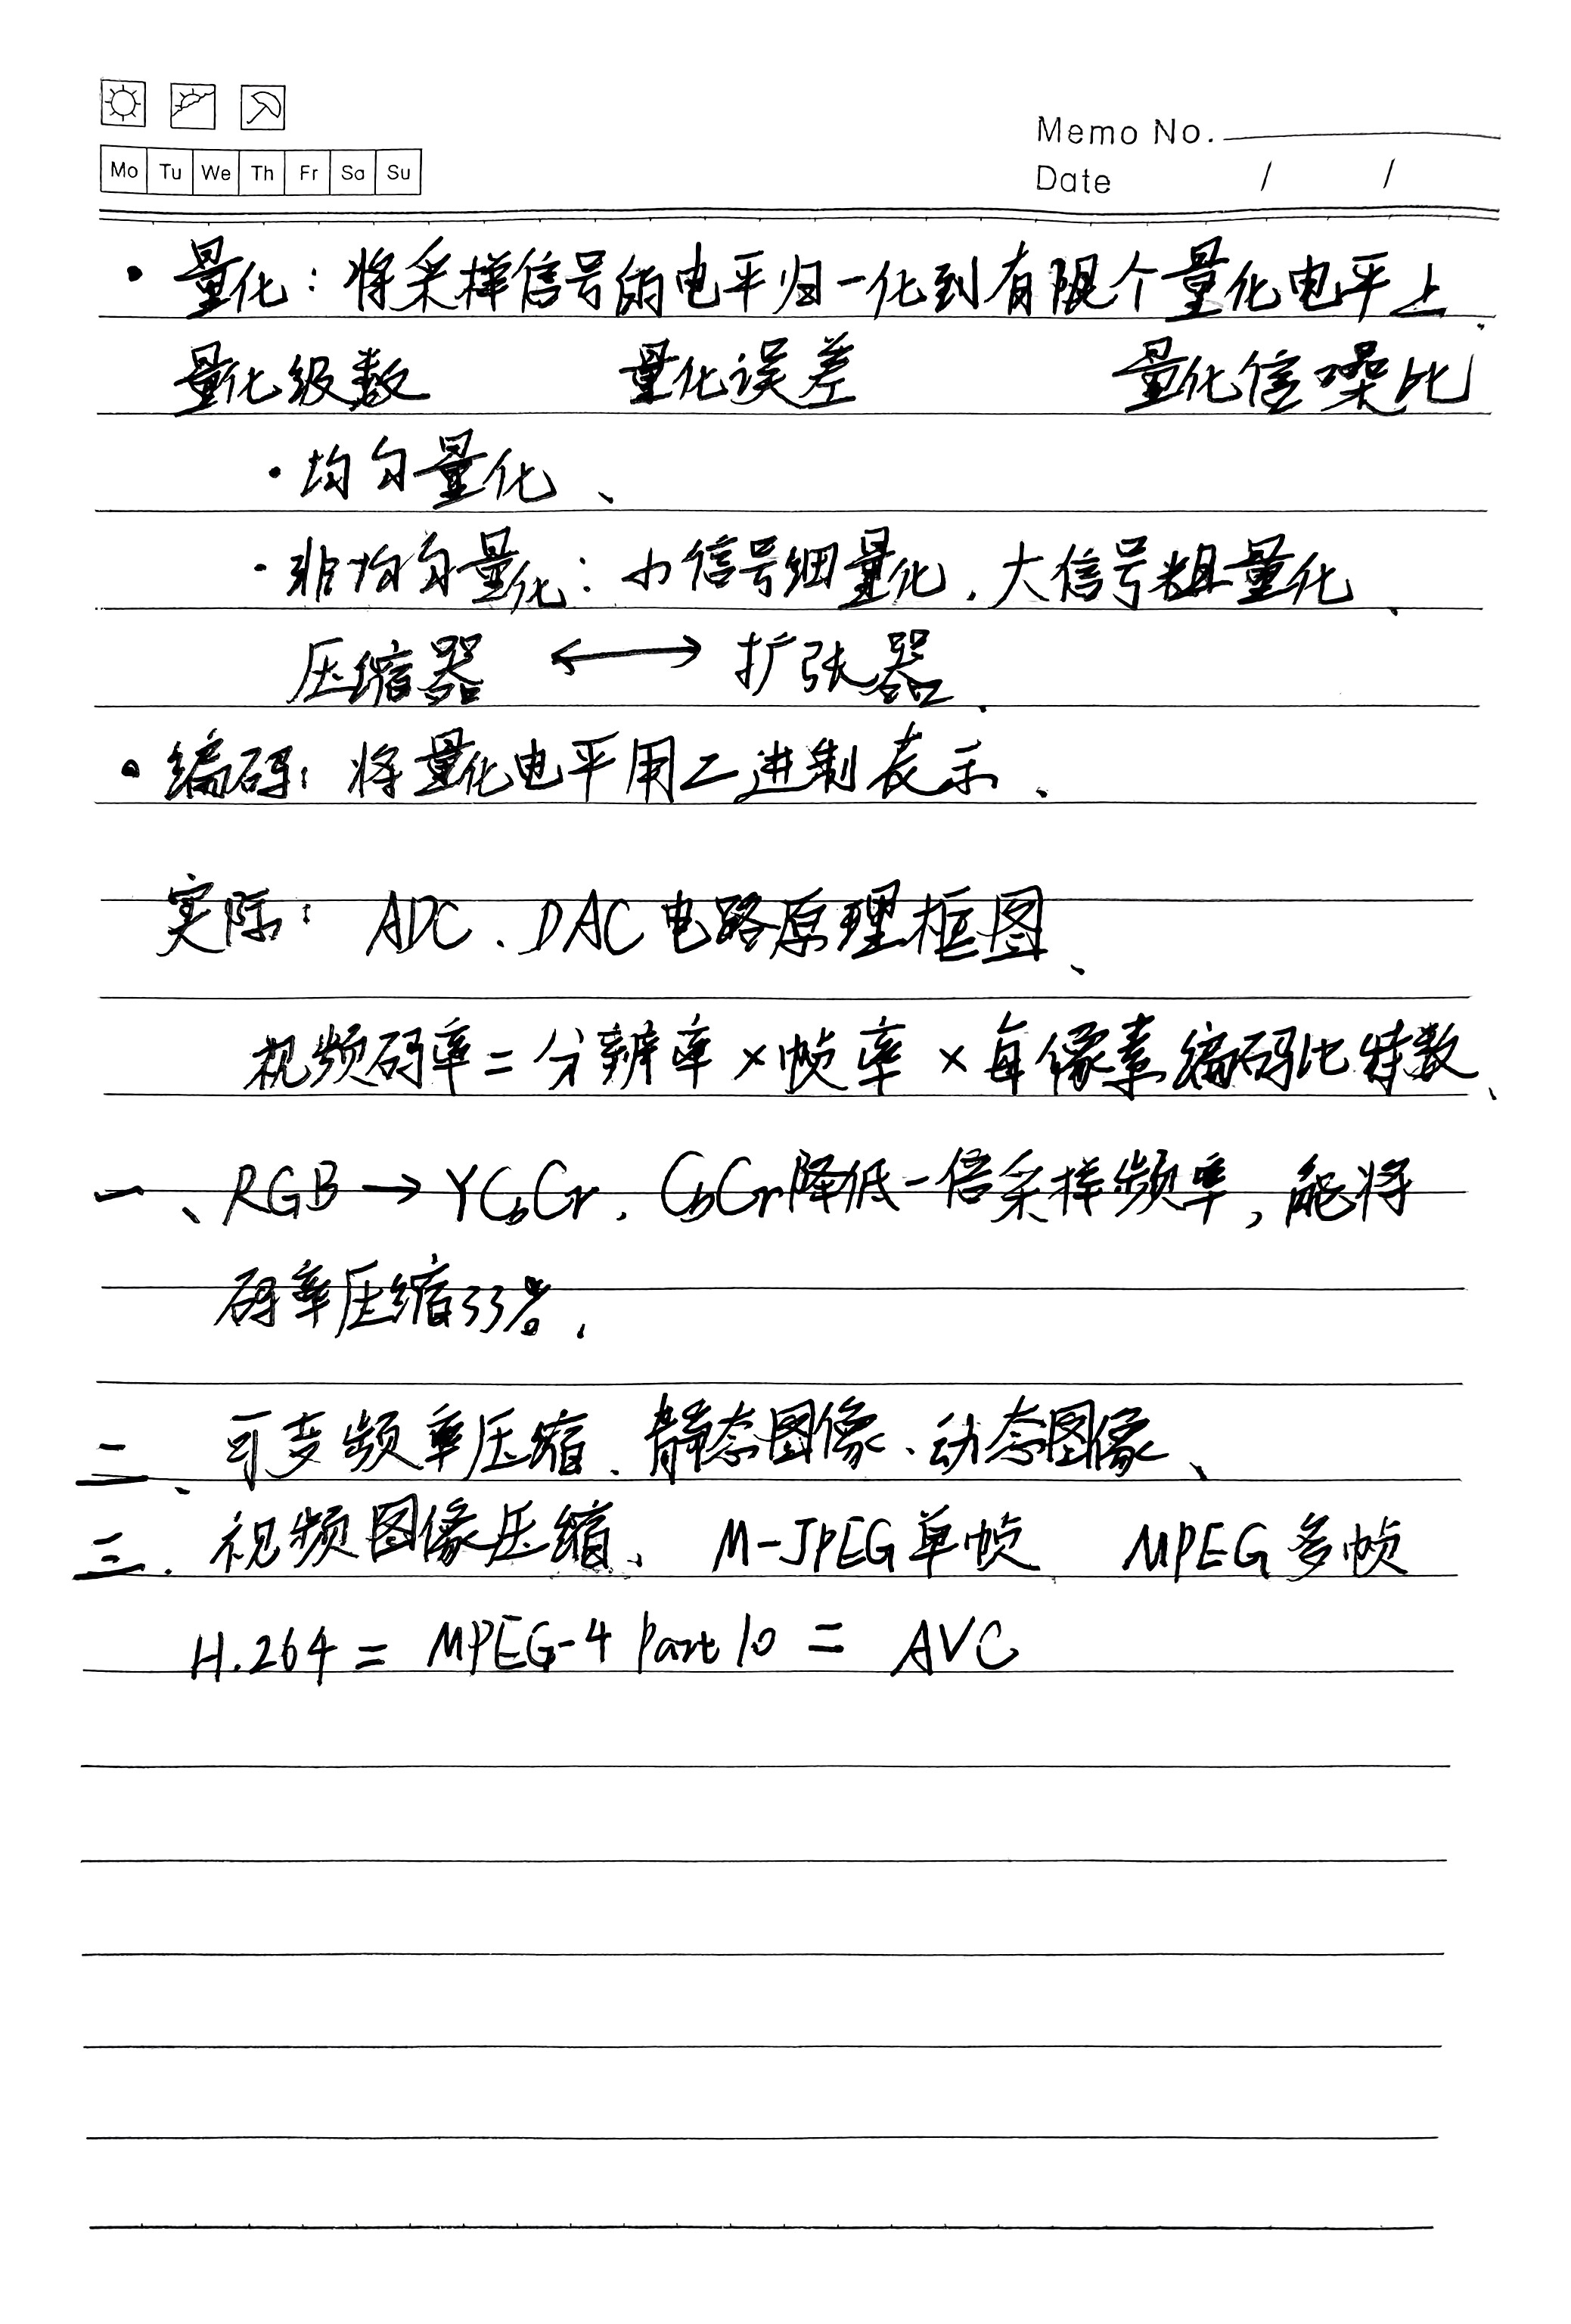 Memo No.
Mo Tu We Th Fr Sa Su
Date / /
• 量化：将采样信号的电平归一化到有限个量化电平上.
量化级数 量化误差 量化信噪比
• 均匀量化、
• 非均匀量化：小信号细量化，大信号粗量化、
压缩器 ⟷ 扩张器.
• 编码：将量化电平用二进制表示、
实际：ADC、DAC电路原理框图、
视频码率＝分辨率×帧率×每像素编码比特数、
一、RGB → YCbCr，CbCr降低一倍采样频率，能将
码率压缩33%、
二、可变频率压缩、静态图像、动态图像、
三、视频图像压缩、M-JPEG单帧 MPEG多帧
H.264 = MPEG-4 Part 10 = AVC